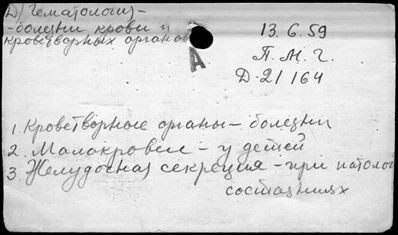 Д) Гематология-
-болезни крови и
кроветворных органов
А
13.6.59
П. М. Г.
Д-21164
1. Кроветворные органы - болезни
2. Малокровие - у детей
3. Желудочная секреция - при патолог
состояниях